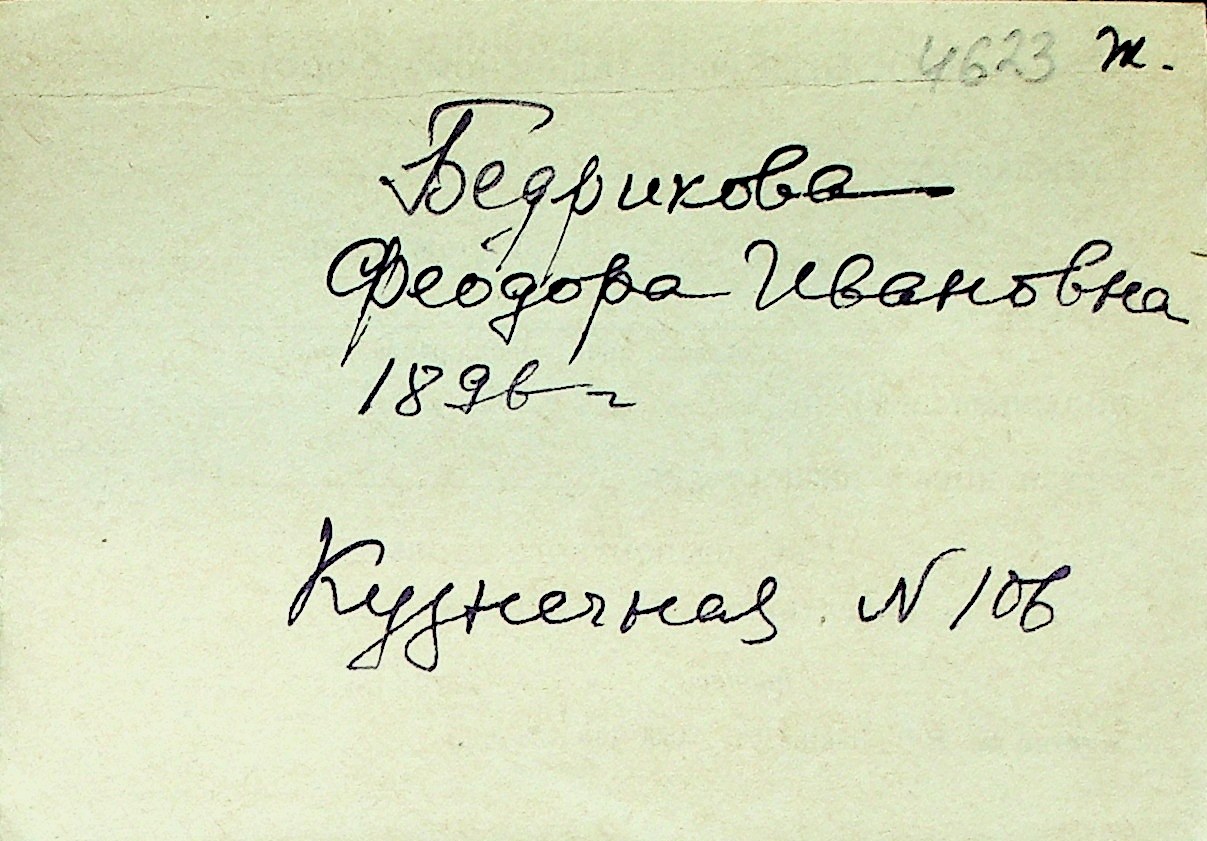 4623 ж.
Бедрикова
Феодора Ивановна
1896 г
Кузнечная N 106